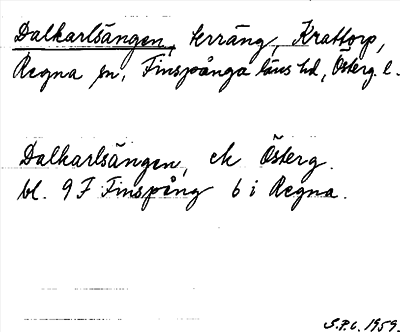 Dalkarlsängen, kräng, Krattorp,
Regna sn, Finspånga läns hd, Österg. l.
Dalkarlsängen, ek Österg.
bl. 9 F Finspång 6 i Regna.
S.P.C. 1959.